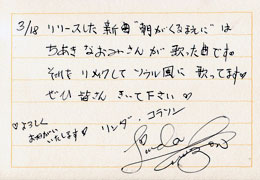 3/18 リリースした新曲"朝がくるまえに"は
ちあきなおみさんが歌った曲です。
それをリメイクしてソウル風に歌ってます♡
ぜひ皆さんきいて下さい♡
♡よろしく
おねがい
いたします♡
リンダ・コラソン
Linda